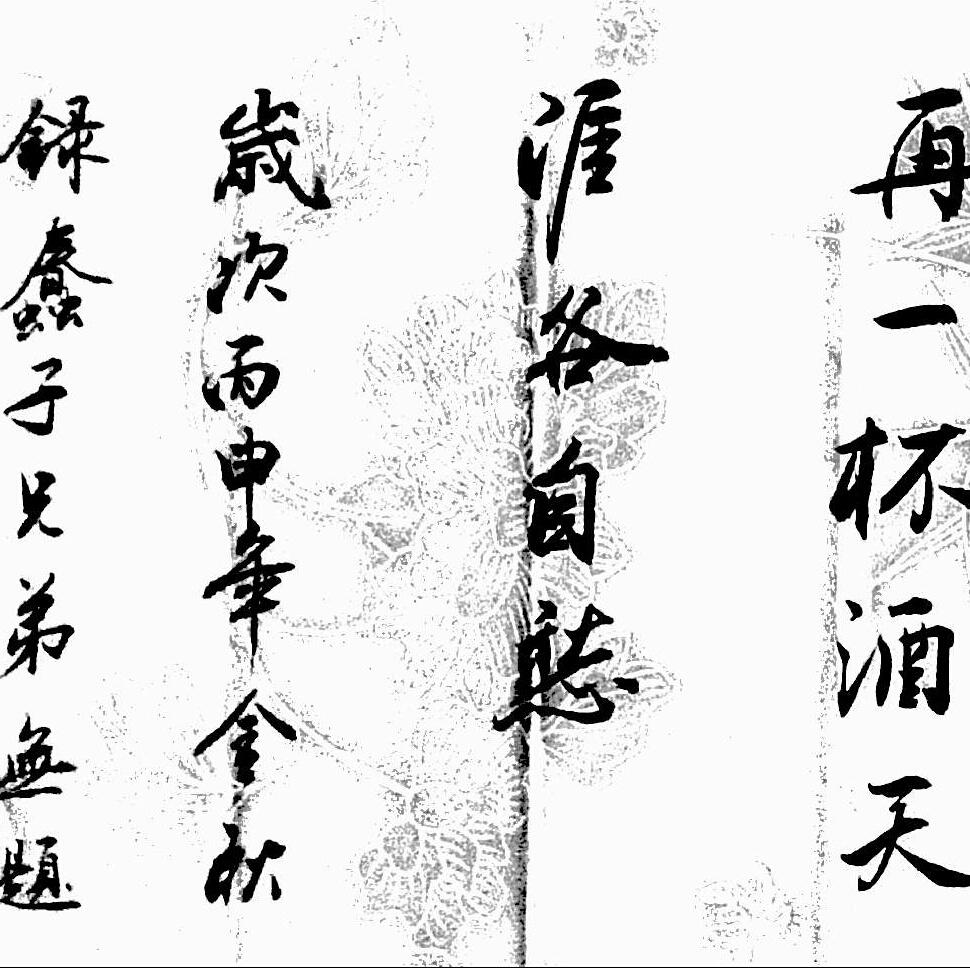 再一杯酒天
涯各自
歲次丙申年金秋
録蠢子兄弟無題